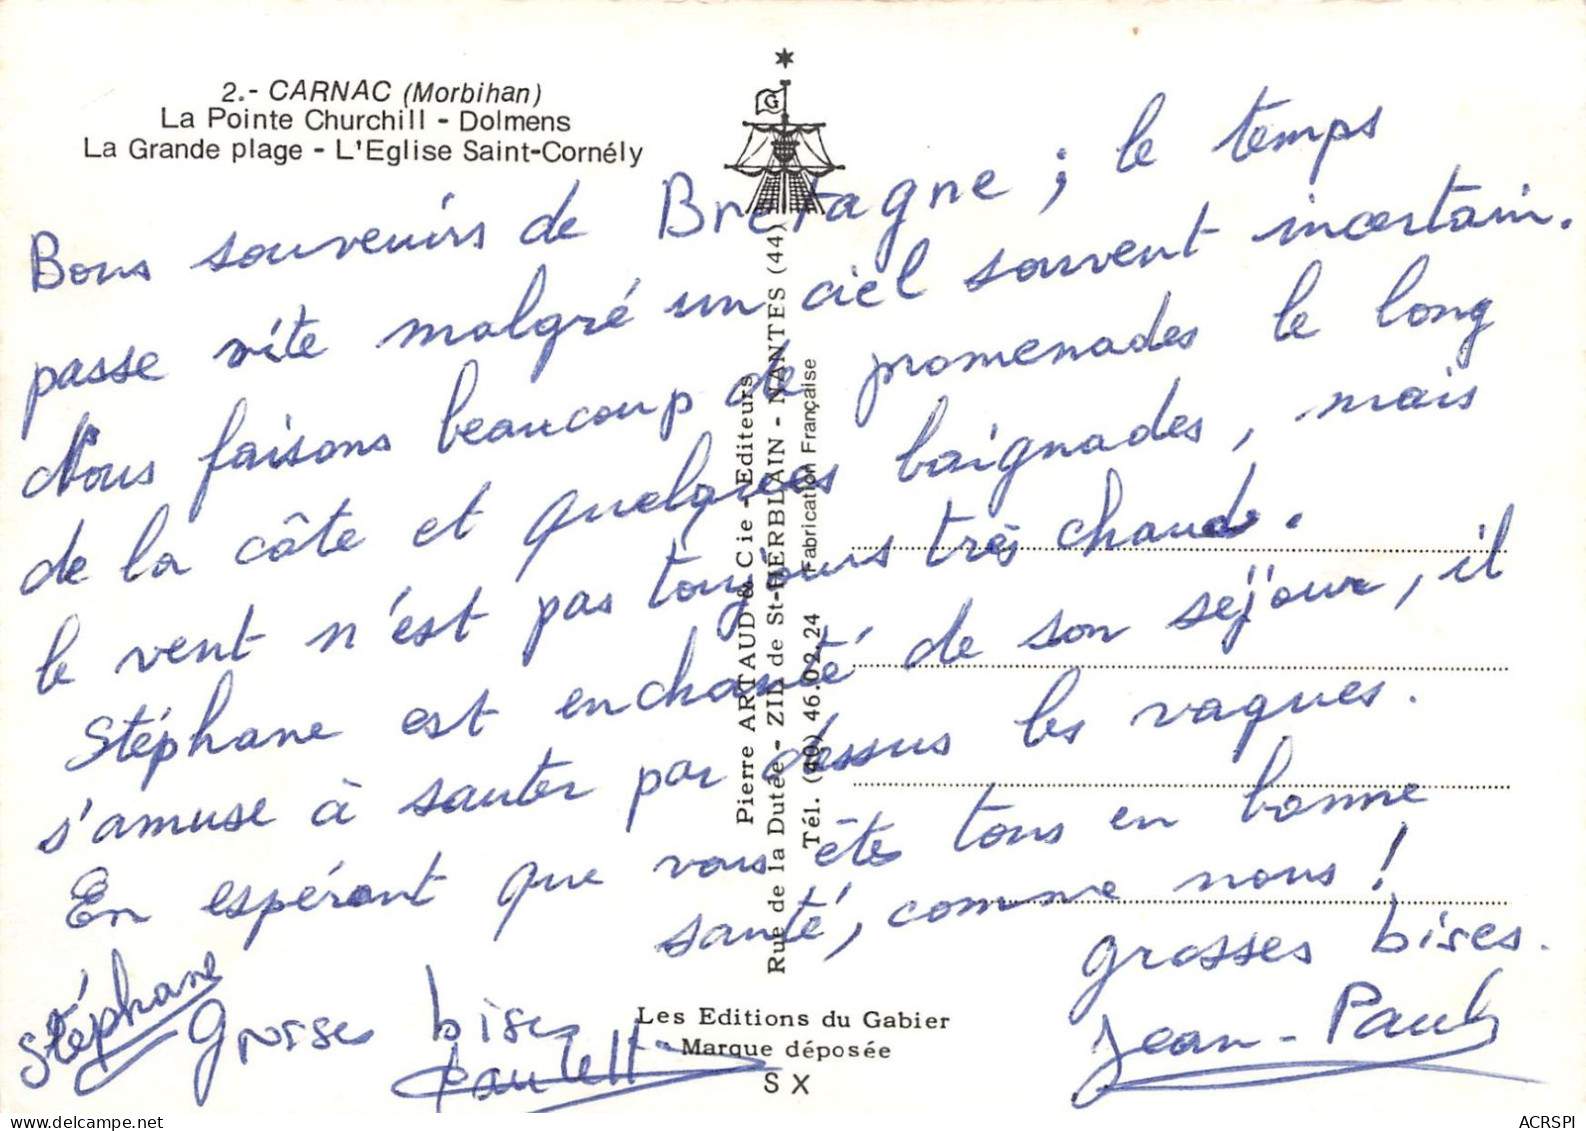 2.- CARNAC (Morbihan)
La Pointe Churchill - Dolmens
La Grande plage - L'Eglise Saint-Cornély
G
Bons souvenirs de Bretagne ; le temps
passe vite malgré un ciel souvent incertain.
Nous faisons beaucoup de promenades le long
de la côte et quelques baignades, mais
le vent n'est pas toujours très chaud.
Stéphane est enchanté de son séjour, il
s'amuse à sauter par dessus les vagues.
En espérant que vous êtes tous en bonne
santé, comme nous !
grosses bises.
Stéphane
grosses bises
Jean-Paul
Pierre ARTAUD & Cie - Editeurs
Rue de la Dutée - ZIL de St-HERBLAIN - NANTES (44)
Tél. (40) 46.02.24 Fabrication Française
Les Editions du Gabier
Marque déposée
S X
ACRSPI